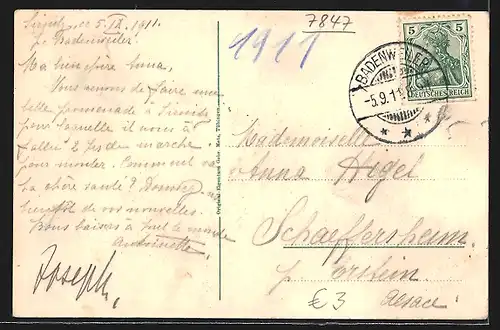 Sirnitz, ce 5. IX. 1911.
p. Badenweiler.
Ma bien chère Anna,
Vous venons de faire une
belle promenade à Sirnitz
pour laquelle il nous a
fallu 2 de marche
pour monter. Comment va
ta chère santé? Donne
bientôt de vos nouvelles.
Bons baisers à tout le monde
Antoinette
Joseph.
Original-Eigentum Gebr. Metz, Tübingen.
1911
7847
5 5
DEUTSCHES REICH
BADENWEILER
-5.9.11
Mademoiselle
Anna Hegel
Schaeffersheim
p. Erstein
Alsace
€3